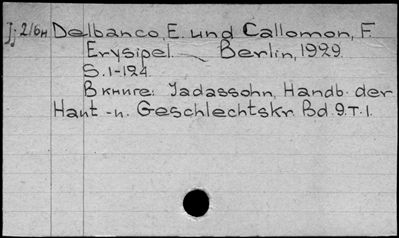 Jj 216н Delbanco, E. und Callomon, F.
Erysipel — Berlin, 1929.
S. 1-124.
В книге: Jadassohn, Handb. der
Haut -u. Geschlechtskr. Bd. 9. T. 1.